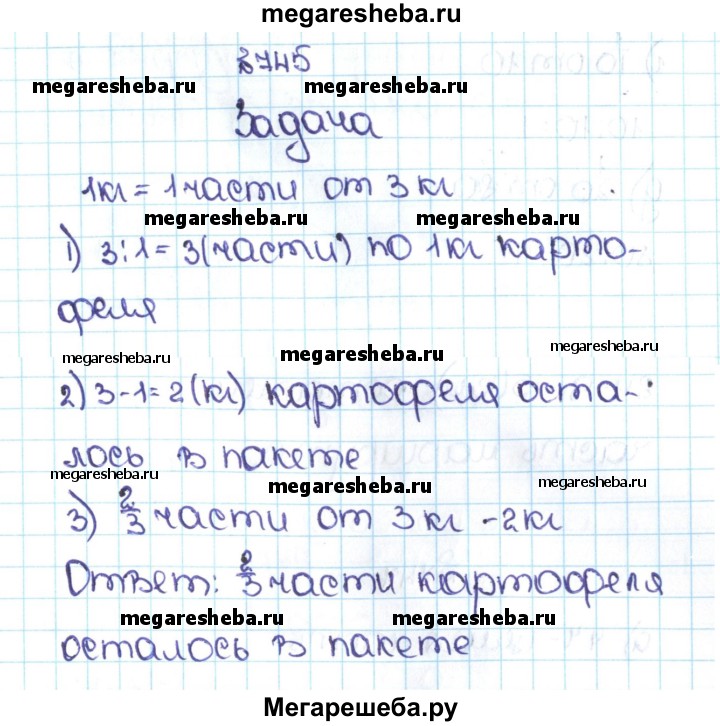 megaresheba.ru
№745
megaresheba.ru megaresheba.ru
Задача
1кг = 1 части от 3 кг
megaresheba.ru megaresheba.ru
1) 3:1=3(части) по 1кг карто-
феля
megaresheba.ru megaresheba.ru megaresheba.ru
2) 3-1=2(кг) картофеля оста-
лось в пакете
megaresheba.ru megaresheba.ru megaresheba.ru
3) 2/3 части от 3 кг -2кг
Ответ: 2/3 части картофеля
megaresheba.ru megaresheba.ru
осталось в пакете
Мегарешеба.ру